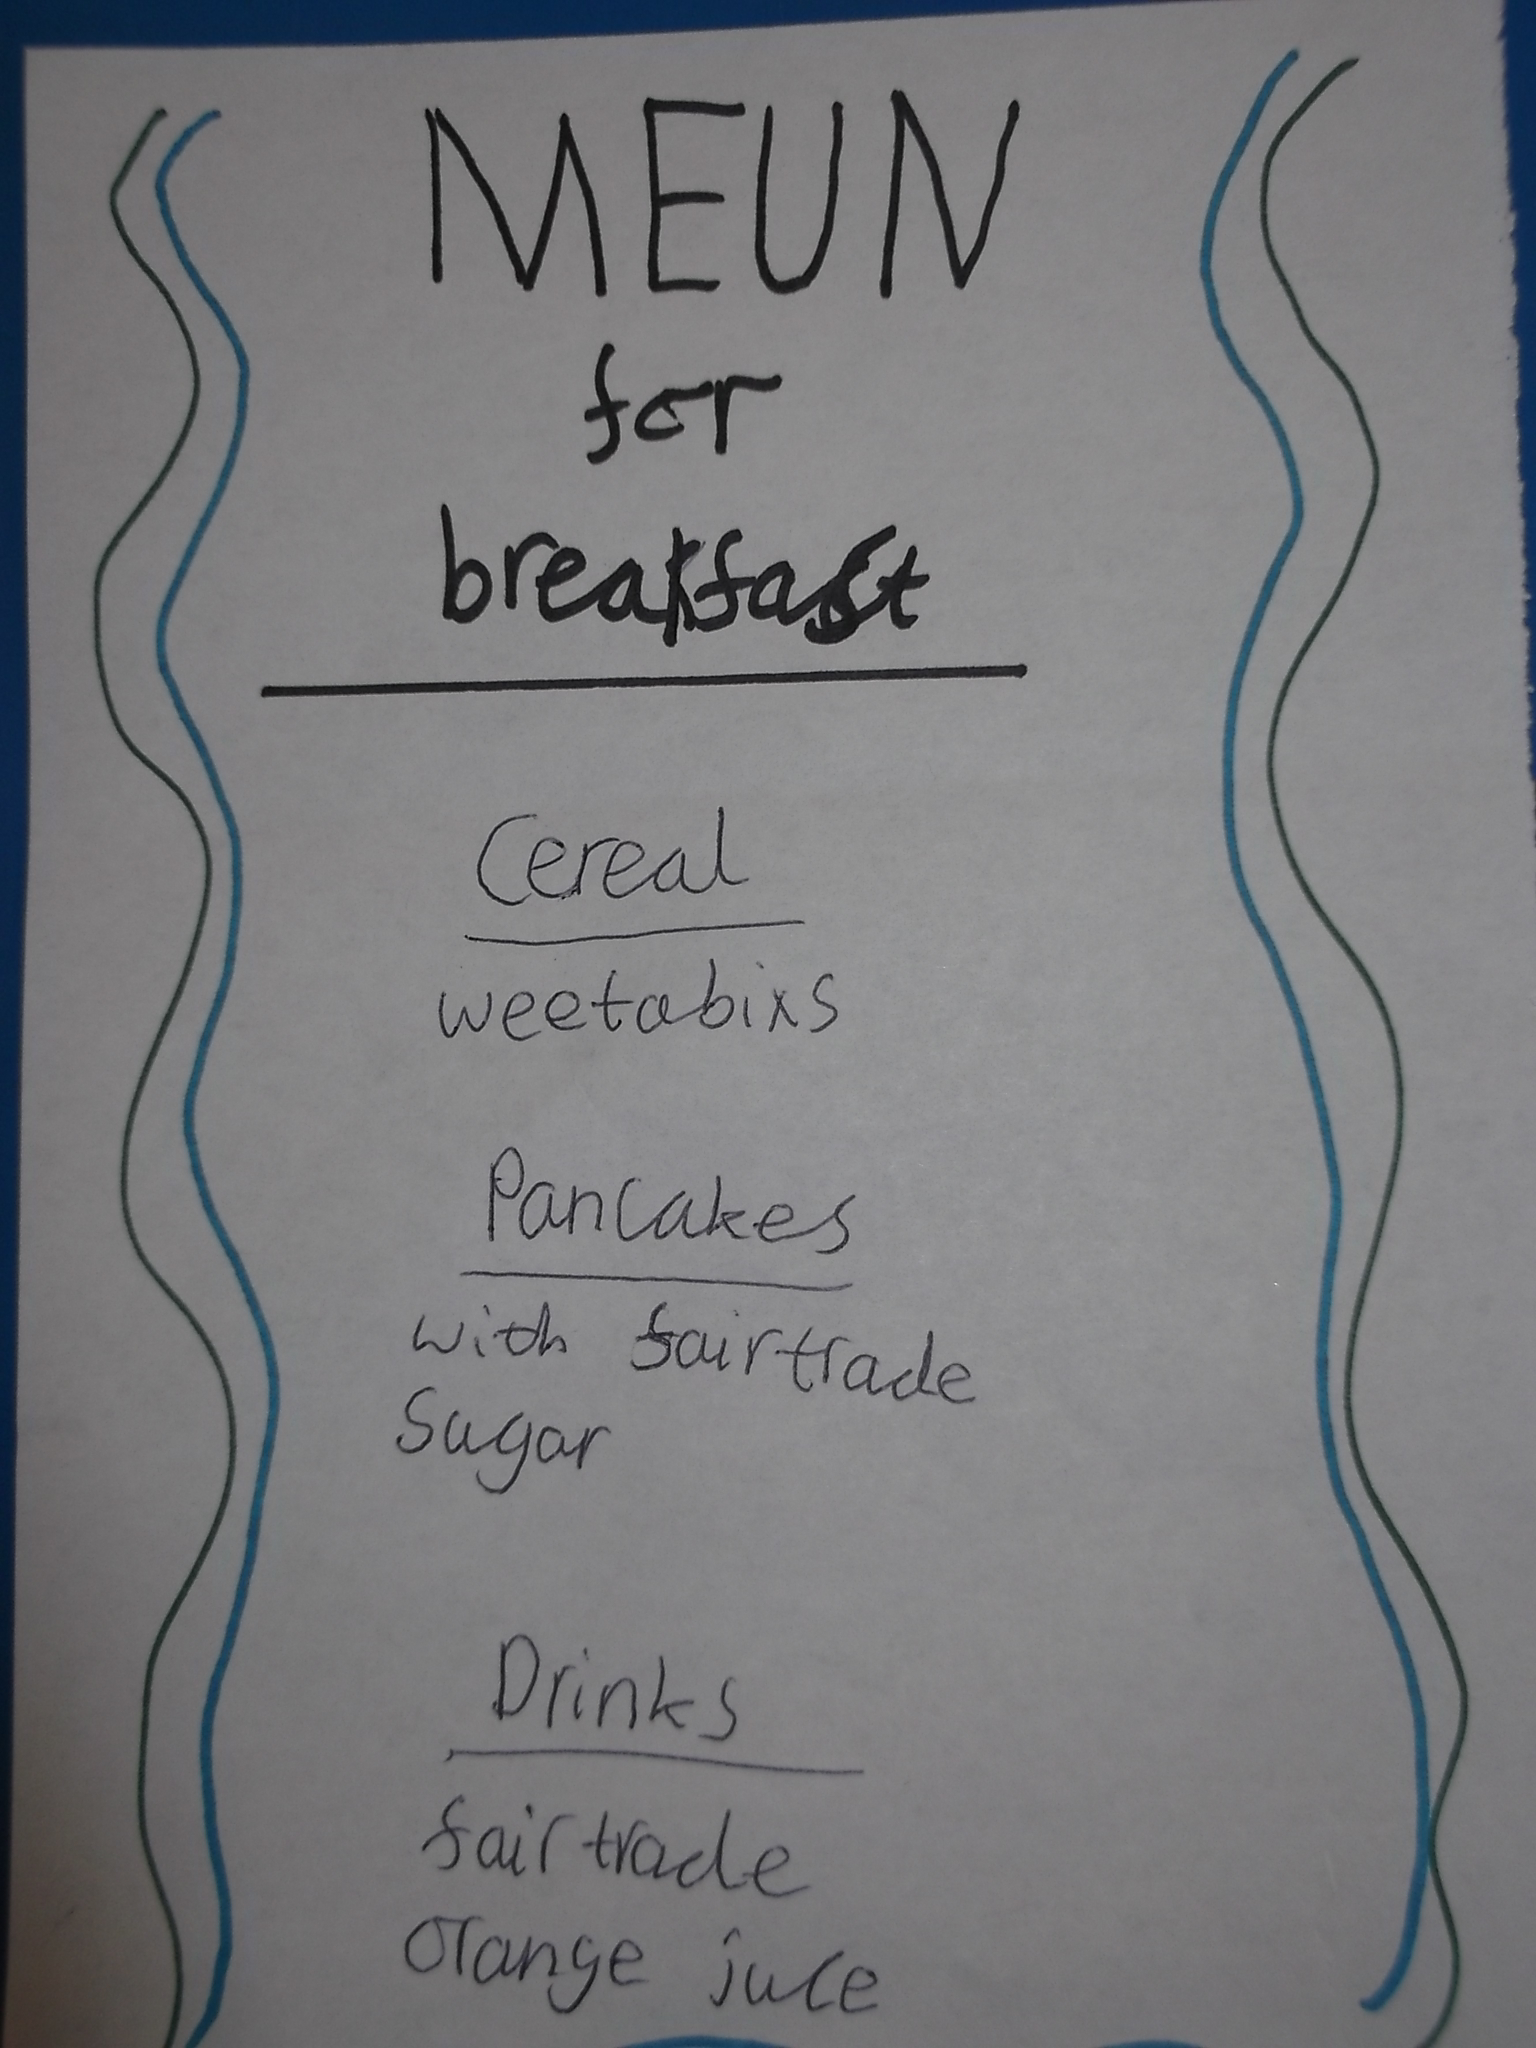 MEUN
for
breakfast
Cereal
weetabixs
Pancakes
with fairtrade
Sugar
Drinks
fairtrade
orange juce